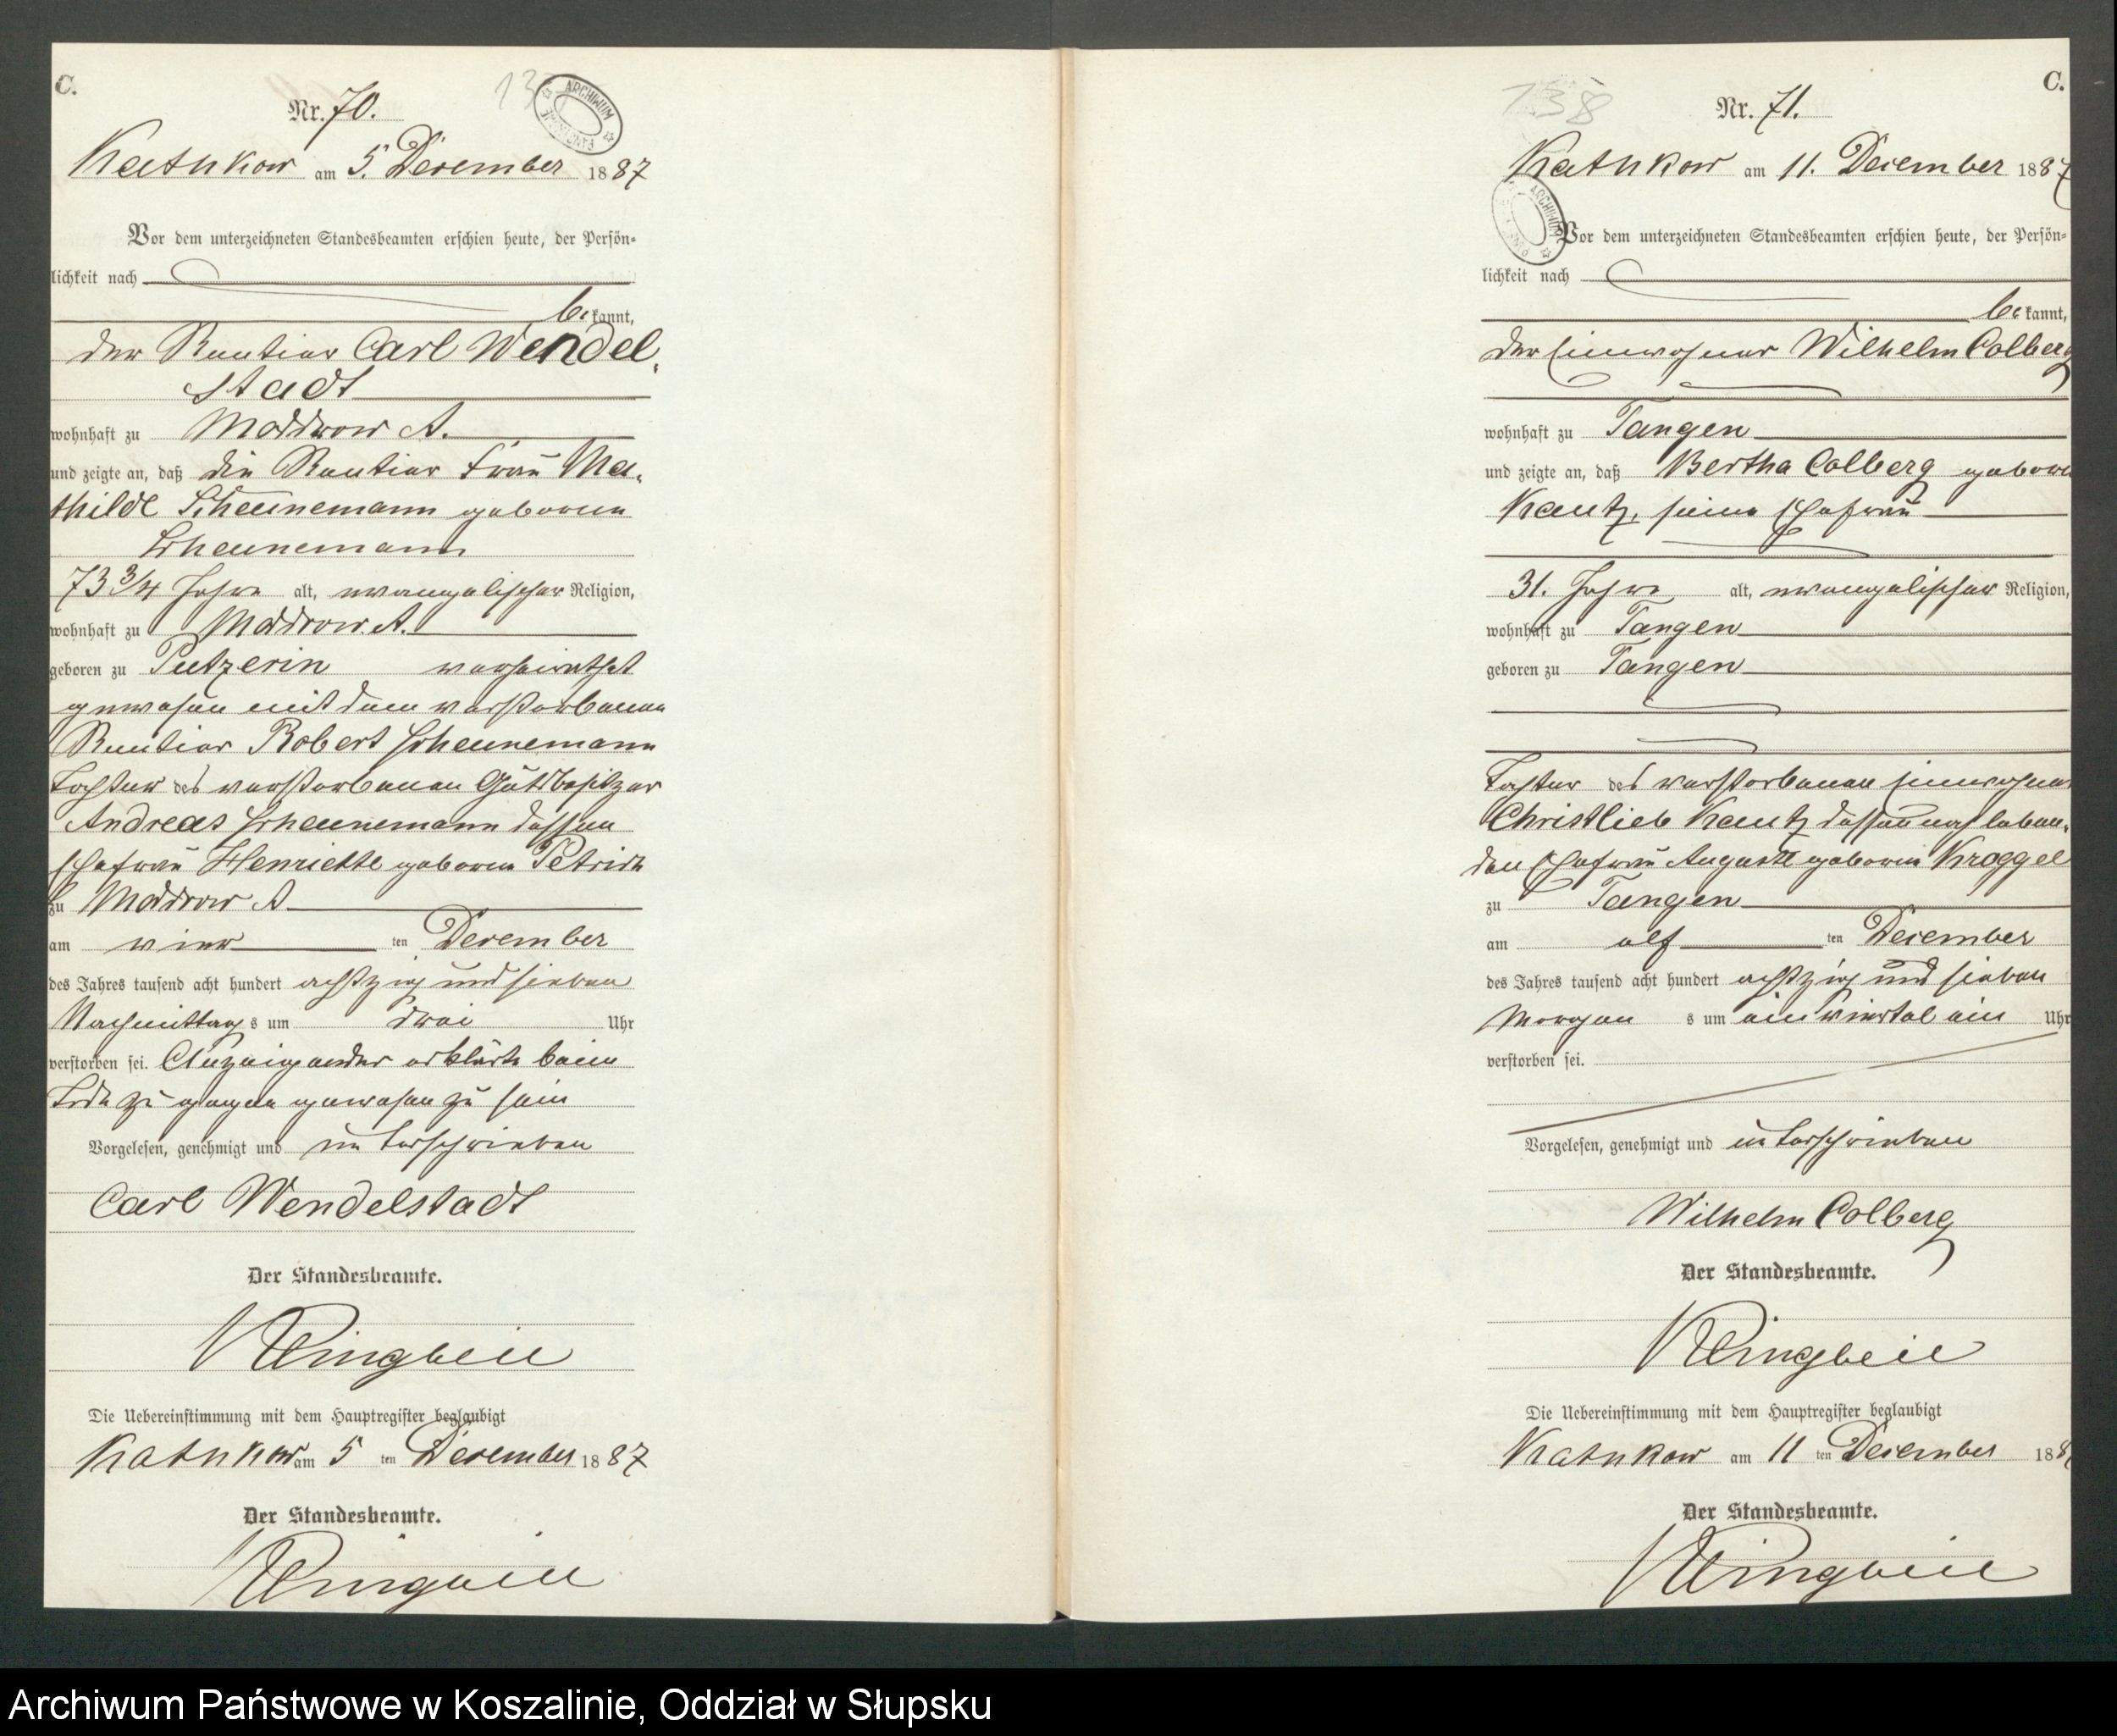 C.
Nr. 70.
ARCHIWUM
Katkkow am 5. December 1887
Vor dem unterzeichneten Standesbeamten erschien heute, der Persön-
lichkeit nach
be kannt,
der Rentier Carl Wendel-
stadt
wohnhaft zu Moddrow A.
und zeigte an, daß die Rentier Frau Ma-
thilde Scheunemann geborene
Scheunemann
73 3/4 Jahre alt, evangelischer Religion,
wohnhaft zu Moddrow A.
geboren zu Putzerin verheirathet
gewesen mit dem verstorbenen
Rentier Robert Scheunemann
Tochter des verstorbenen Gutsbesitzer
Andreas Scheunemann dessen
Ehefrau Henriette geborene Petrich
zu Moddrow A
am vier ten December
des Jahres tausend acht hundert achtzig und sieben
Nachmittags um drei Uhr
verstorben sei. Anzeigender erklärte beim
Tode zugegen gewesen zu sein
Vorgelesen, genehmigt und unterschrieben
Carl Wendelstadt
Der Standesbeamte.
Klingbeil
Die Uebereinstimmung mit dem Hauptregister beglaubigt
Katkkow am 5 ten December 1887
Der Standesbeamte.
Klingbeil
C.
138
Nr. 71.
Katkkow am 11. December 1887
ARCHIWUM
Vor dem unterzeichneten Standesbeamten erschien heute, der Persön-
lichkeit nach
be kannt,
der Einwohner Wilhelm Colberg
wohnhaft zu Tangen
und zeigte an, daß Bertha Colberg geborne
Kautz, seine Ehefrau
31. Jahre alt, evangelischer Religion,
wohnhaft zu Tangen
geboren zu Tangen
Tochter des verstorbenen Einwohner
Christlieb Kautz dessen noch leben-
den Ehefrau Auguste geborene Kroggel
zu Tangen
am elf ten December
des Jahres tausend acht hundert achtzig und sieben
Morgens um ein Viertel ein Uhr
verstorben sei.
Vorgelesen, genehmigt und unterschrieben
Wilhelm Colberg
Der Standesbeamte.
Klingbeil
Die Uebereinstimmung mit dem Hauptregister beglaubigt
Katkkow am 11 ten December 188
Der Standesbeamte.
Klingbeil
Archiwum Państwowe w Koszalinie, Oddział w Słupsku